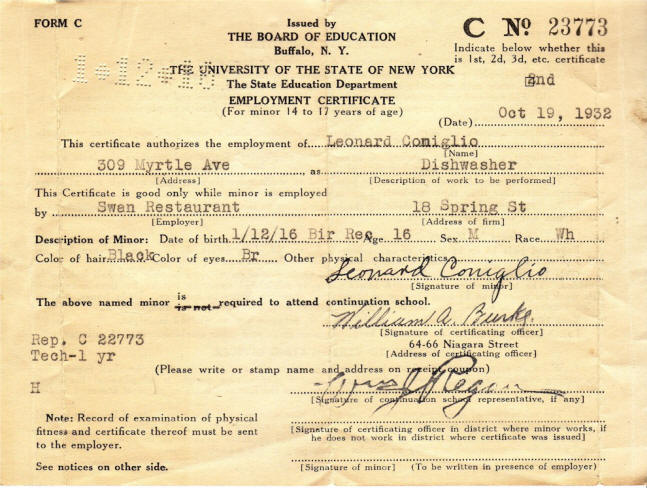 FORM C
Issued by
THE BOARD OF EDUCATION
Buffalo, N. Y.
C Nº 23773
Indicate below whether this
is 1st, 2d, 3d, etc. certificate
2nd
1*12*16
THE UNIVERSITY OF THE STATE OF NEW YORK
The State Education Department
EMPLOYMENT CERTIFICATE
(For minor 14 to 17 years of age)
(Date) Oct 19, 1932
This certificate authorizes the employment of Leonard Coniglio
[Name]
309 Myrtle Ave as Dishwasher
[Address] [Description of work to be performed]
This Certificate is good only while minor is employed
by Swan Restaurant 18 Spring St
[Employer] [Address of firm]
Description of Minor: Date of birth 1/12/16 Bir Rec Age 16 Sex M Race Wh
Color of hair Black Color of eyes Br Other physical characteristics
Leonard Coniglio
[Signature of minor]
The above named minor is is not required to attend continuation school.
William A. Burke
[Signature of certifying officer]
64-66 Niagara Street
[Address of certifying officer]
Rep. C 22773
Tech-1 yr
(Please write or stamp name and address on receipt coupon)
H
[Signature of continuation school representative, if any]
Note: Record of examination of physical
fitness and certificate thereof must be sent
to the employer.
[Signature of certifying officer in district where minor works, if
he does not work in district where certificate was issued]
See notices on other side.
[Signature of minor] (To be written in presence of employer)